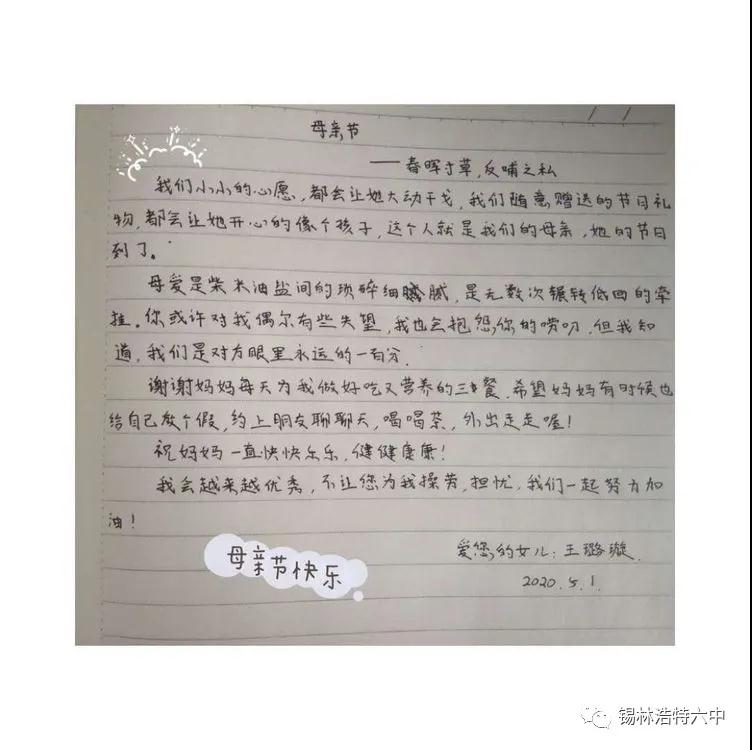 母亲节
——春晖寸草,反哺之私
我们小小的心愿,都会让她大动干戈,我们随意赠送的节日礼
物,都会让她开心的像个孩子,这个人就是我们的母亲,她的节日
到了。
母爱是柴米油盐间的琐碎细腻,是无数次辗转低回的牵
挂。你或许对我偶尔有些失望,我也会抱怨你的唠叨,但我知
道,我们是对方眼里永远的一百分.
谢谢妈妈每天为我做好吃又营养的三餐.希望妈妈有时候也
给自己放个假,约上朋友聊聊天,喝喝茶,外出走走喔!
祝妈妈一直快快乐乐,健健康康!
我会越来越优秀,不让您为我操劳,担忧,我们一起努力加
油!
爱您的女儿:王璐璇.
2020.5.1.
母亲节快乐
锡林浩特六中